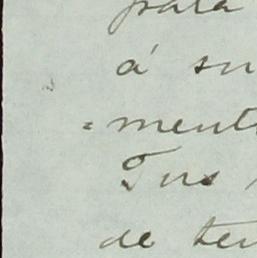 para
á su
=ment
Tus
de ten